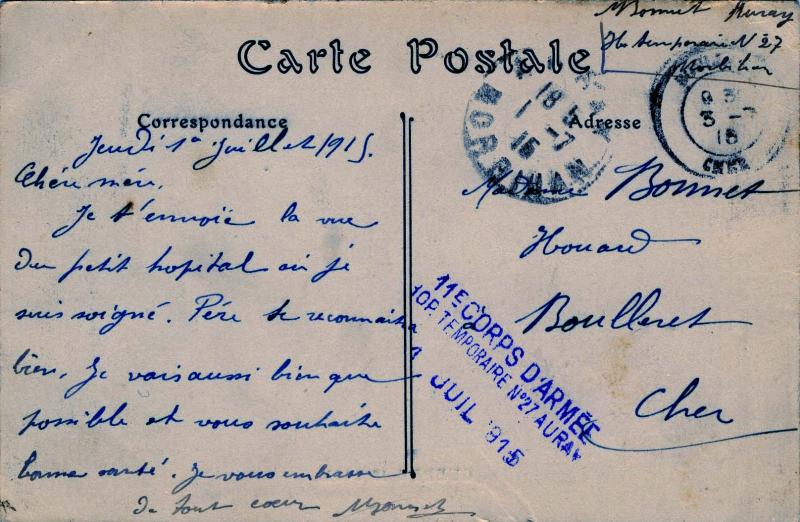 MBonnet Auray
Hop temporaire N 27
Morbihan
Carte Postale
Correspondance
Adresse
Jeudi 1er Juillet 1915.
Chère mère,
Je t'envoie la vue
du petit hopital où je
suis soigné. Père le reconnaitra
bien. Je vais aussi bien que
possible et vous souhaite
bonne santé. Je vous embrasse
de tout coeur MBonnet
18
1-7
15
MORBIHAN
3-7
15
CHER
Madame Bonnet
Houard
Boulleret
Cher
11E CORPS D'ARMÉE
HOP. TEMPORAIRE N°27 AURAY
1 JUIL 1915